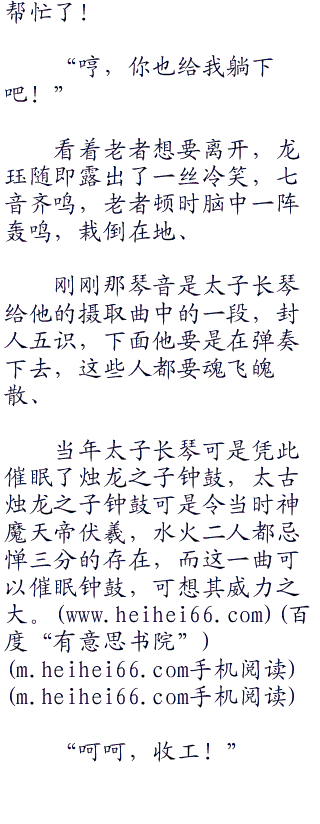 帮忙了！
“哼，你也给我躺下
吧！”
看着老者想要离开，龙
珏随即露出了一丝冷笑，七
音齐鸣，老者顷时脑中一阵
轰鸣，栽倒在地、
刚刚那琴音是太子长琴
给他的摄取曲中的一段，封
人五识，下面他要是在弹奏
下去，这些人都要魂飞魄
散、
当年太子长琴可是凭此
催眠了烛龙之子钟鼓，太古
烛龙之子钟鼓可是令当时神
魔天帝伏羲，水火二人都忌
惮三分的存在，而这一曲可
以催眠钟鼓，可想其威力之
大。(www.heihei66.com)(百
度“有意思书院”)
(m.heihei66.com手机阅读)
(m.heihei66.com手机阅读)
“呵呵，收工！”